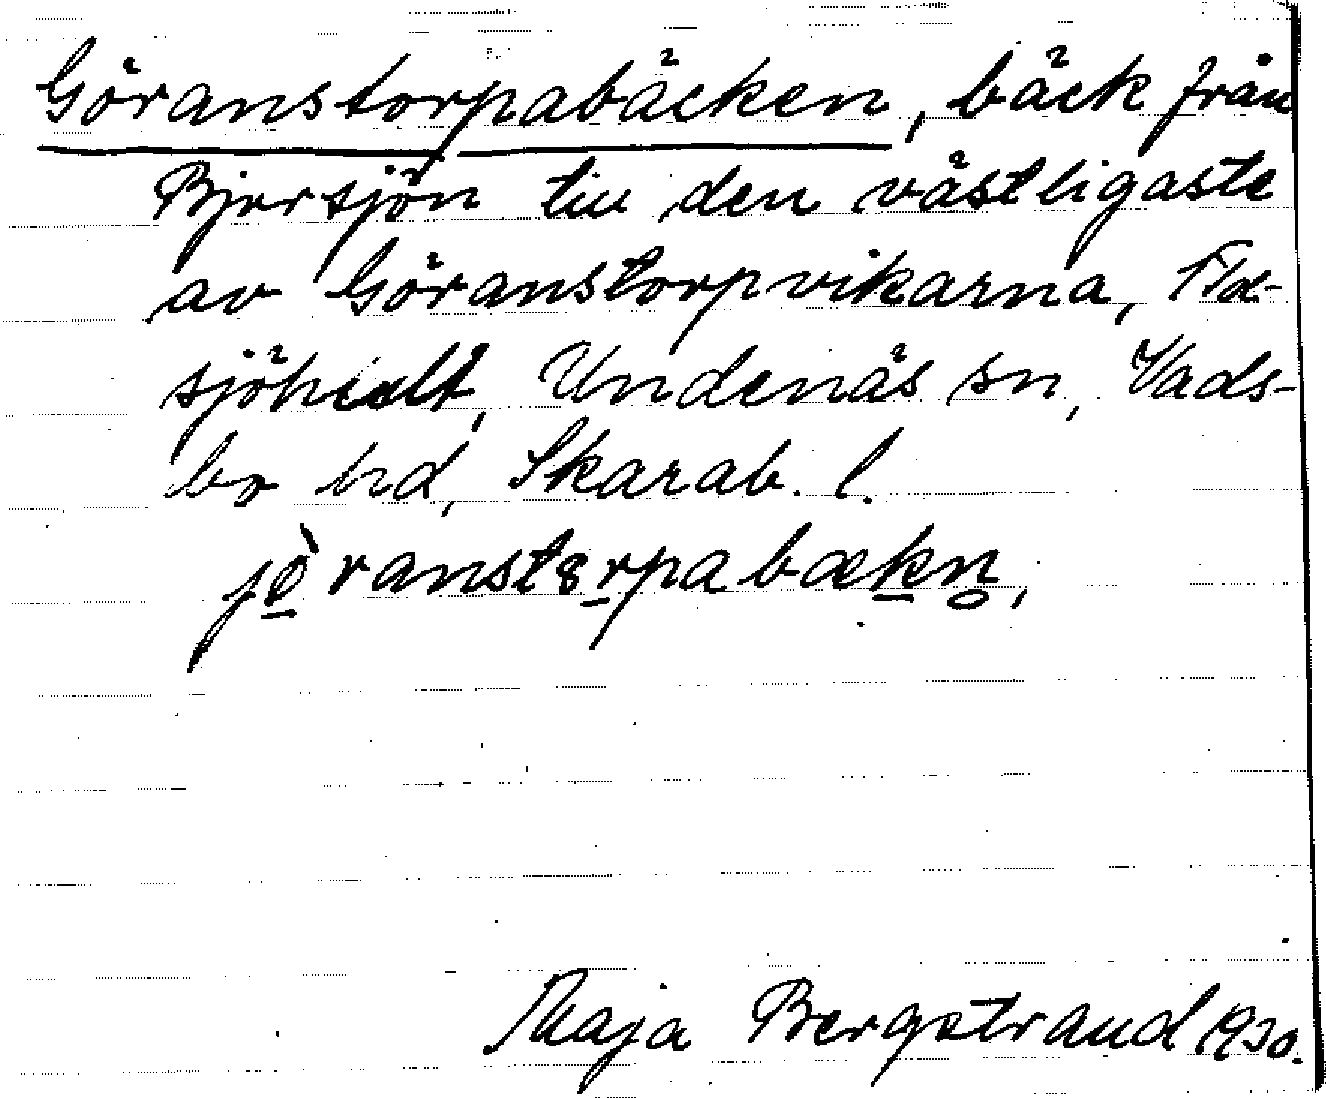 Göranstorpabäcken, bäck från
Bjorsjön till den västligaste
av Göranstorpvikarna,
Undenäs sn, Vads-
bo hd, Skarab. l.
jö̀ranstɞrpabækn̥,
Maja Bergstrand 1930.